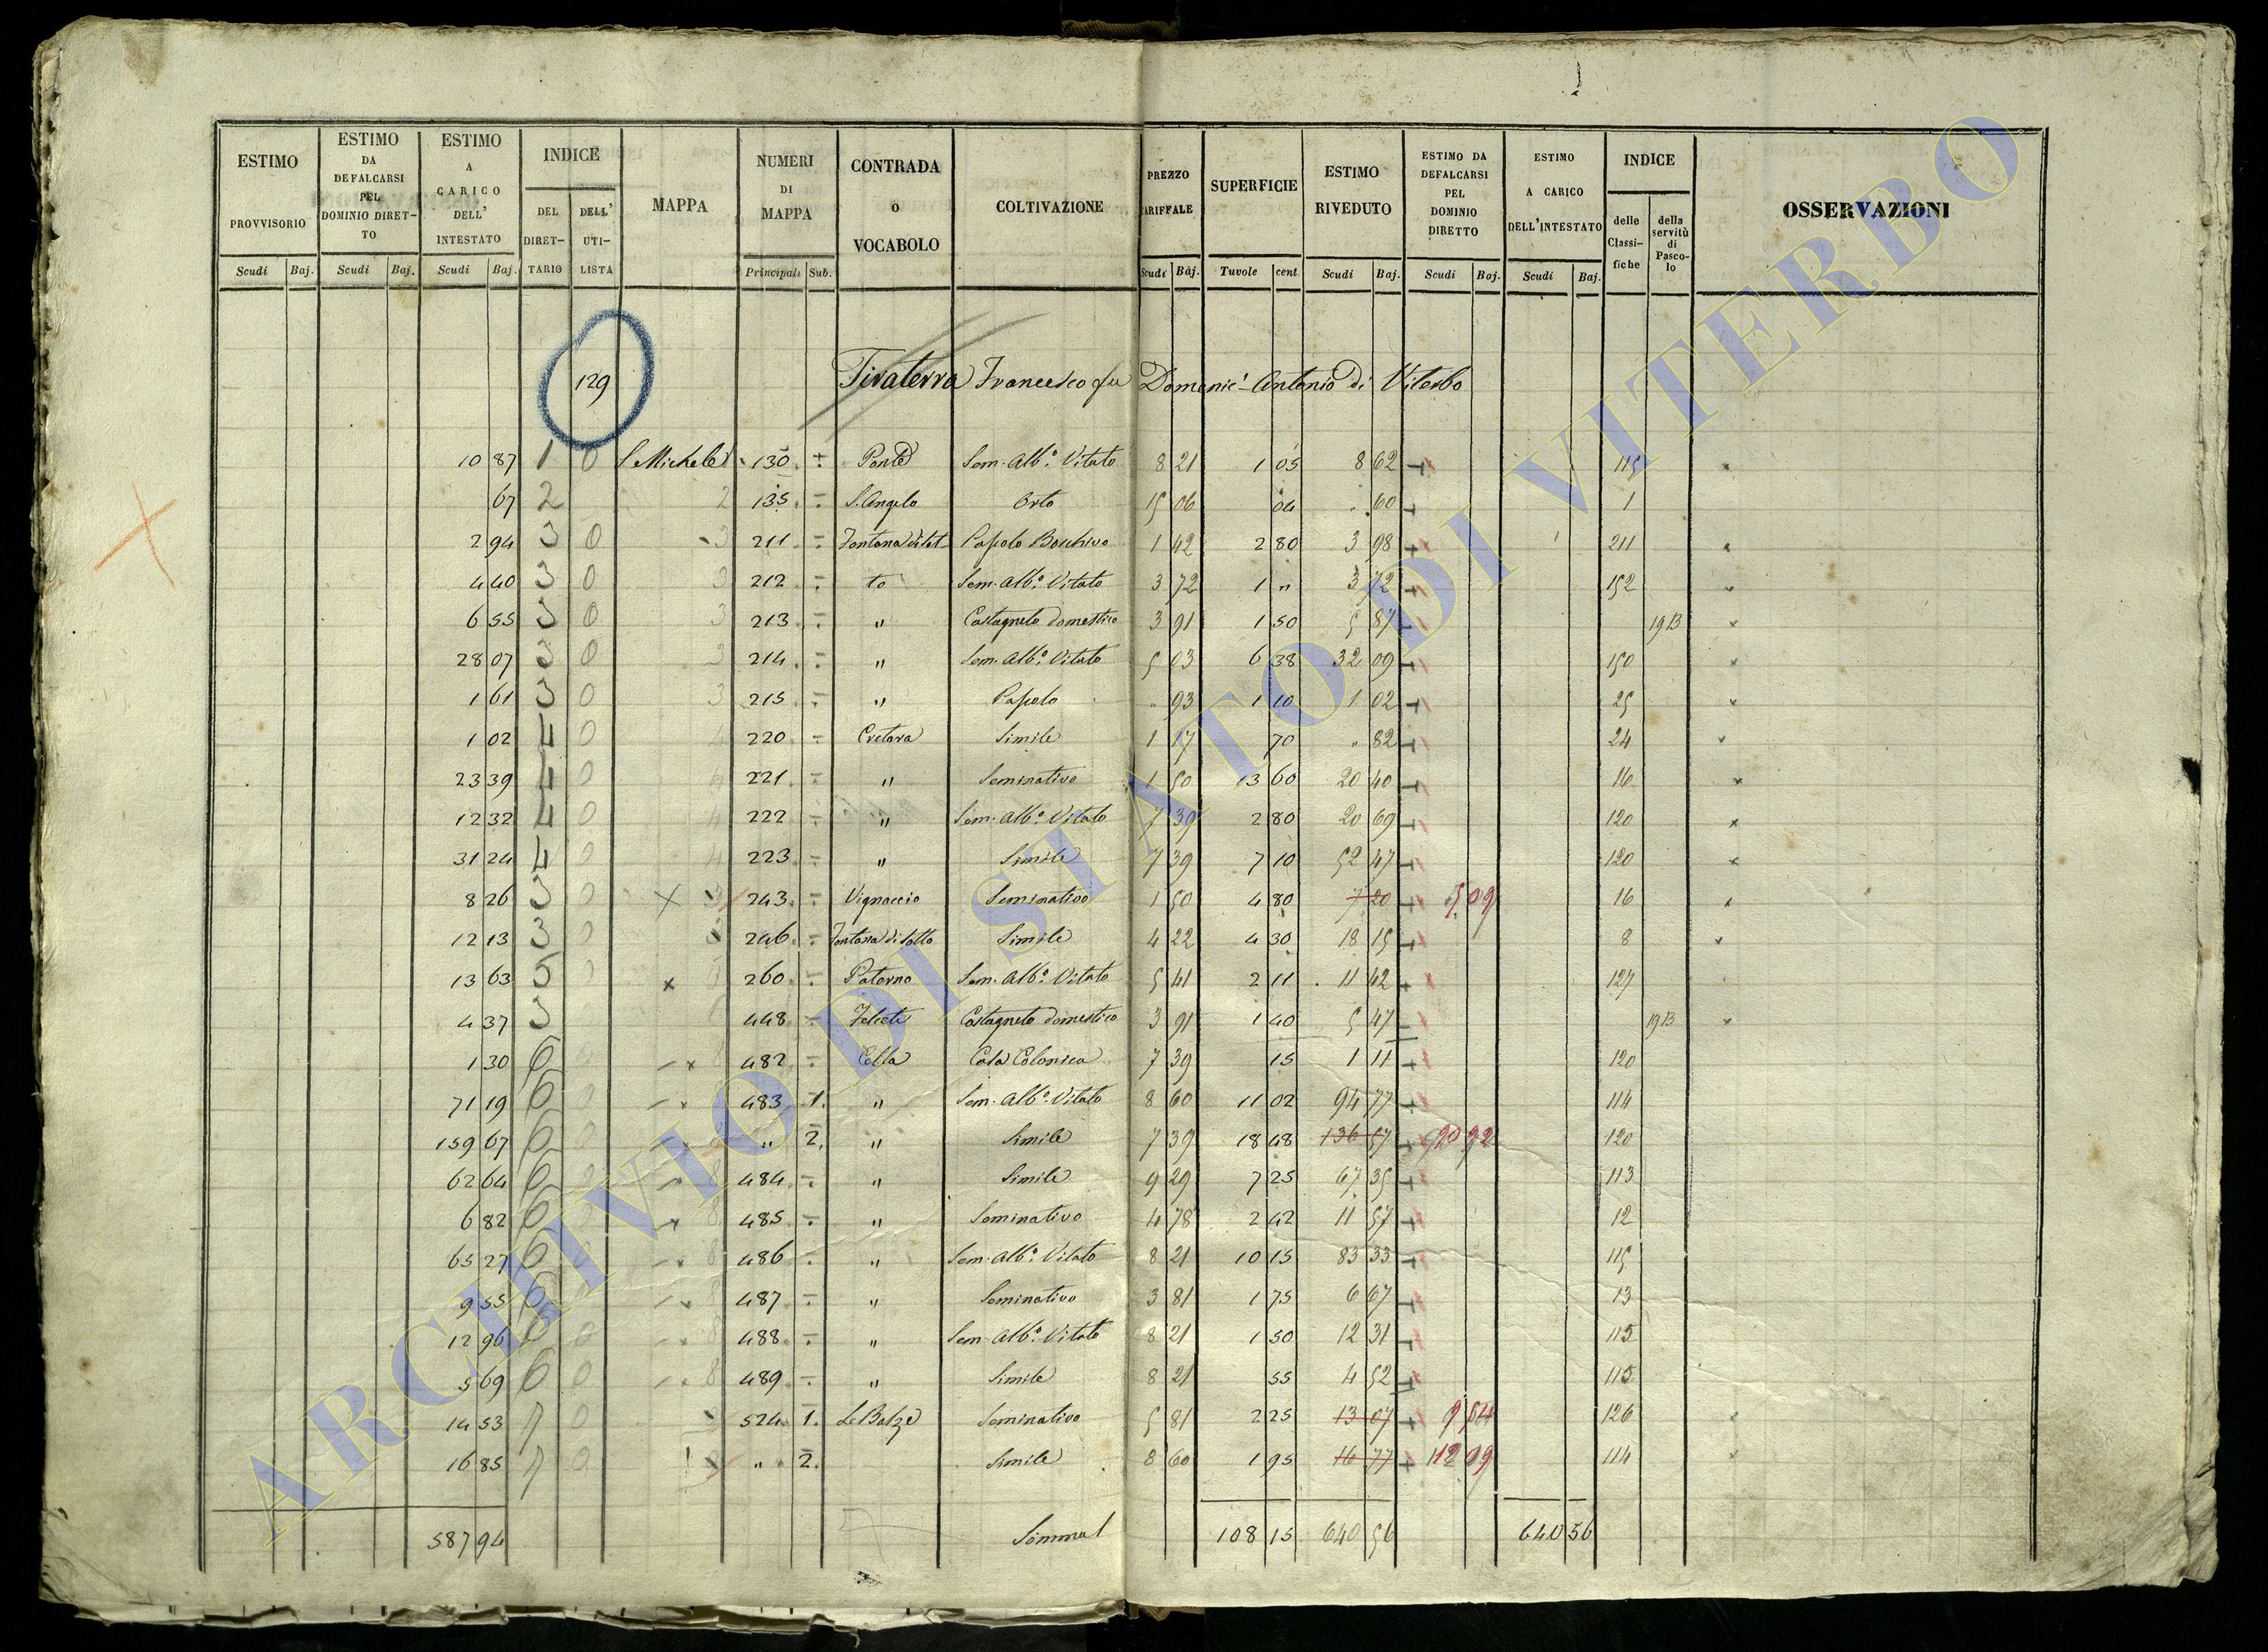 ESTIMO PROVVISORIO Scudi Baj.
ESTIMO DA DEFALCARSI PEL DOMINIO DIRET- TO Scudi Baj.
ESTIMO A CARICO DELL' INTESTATO Scudi Baj.
INDICE DEL DIRET- TARIO DELL' UTI- LISTA
MAPPA
NUMERI DI MAPPA Principali Sub.
CONTRADA O VOCABOLO
COLTIVAZIONE
PREZZO TARIFFALE Scudi Bàj.
SUPERFICIE Tavole cent.
ESTIMO RIVEDUTO Scudi Baj.
ESTIMO DA DEFALCARSI PEL DOMINIO DIRETTO Scudi Baj.
ESTIMO A CARICO DELL'INTESTATO Scudi Baj.
INDICE delle Classi- fiche della servitù di Pasco- lo
OSSERVAZIONI
129 Tiraterra Francesco fu Domenic' Antonio di Viterbo
10 87 1 0 S. Michele 130 Ponte Sem. Alb.o Vitato 8 21 1 05 8 62 115
67 2 2 135 S. Angelo Orto 15 06 04 60 1
2 94 3 0 3 211 Fontana di sot Pascolo Boschivo 1 42 2 80 3 98 211
4 40 3 0 3 212 to Sem. Alb.o Vitato 3 72 1 " 3 72 152
6 55 3 0 3 213 " Castagneto domestico 3 91 1 50 5 87 19 B
28 07 3 0 3 214 " Sem. Alb.o Vitato 5 03 6 38 32 09 150
1 61 3 0 3 215 " Pascolo " 93 1 10 1 02 25
1 02 4 0 4 220 Cretara Simile 1 17 70 " 82 24
23 39 4 0 4 221 " Seminativo 1 50 13 60 20 40 16
12 32 4 0 4 222 " Sem. Alb.o Vitato 7 39 2 80 20 69 120
31 24 4 0 4 223 " Simile 7 39 7 10 52 47 120
8 26 3 0 3 243 Vignaccio Seminativo 1 50 4 80 7 20 5 09 16
12 13 3 0 246 Fontana di sotto Simile 4 22 4 30 18 15 8
13 63 5 0 260 Paterno Sem. Alb.o Vitato 5 41 2 11 11 42 127
4 37 3 448 Feliceti Castagneto domestico 3 91 1 40 5 47 19 B
1 30 6 482 Cella Casa Colonica 7 39 15 1 11 120
71 19 6 0 483 1. " Sem. Alb.o Vitato 8 60 11 02 94 77 114
159 67 6 0 " 2. " Simile 7 39 18 48 136 57 90 92 120
62 64 6 0 8 484 " Simile 9 29 7 25 67 35 113
6 82 6 0 8 485 " Seminativo 4 78 2 42 11 57 12
65 27 6 0 8 486 " Sem. Alb.o Vitato 8 21 10 15 83 33 115
9 55 6 0 8 487 " Seminativo 3 81 1 75 6 67 13
12 96 6 0 8 488 " Sem. Alb.o Vitato 8 21 1 50 12 31 115
5 69 6 0 8 489 " Simile 8 21 55 4 52 115
14 53 7 0 524 1. Le Balze Seminativo 5 81 2 25 13 07 9 54 126
16 85 7 0 " 2. Simile 8 60 1 95 16 77 12 09 114
587 94 Somma 108 15 640 56 640 56
ARCHIVIO DI STATO DI VITERBO